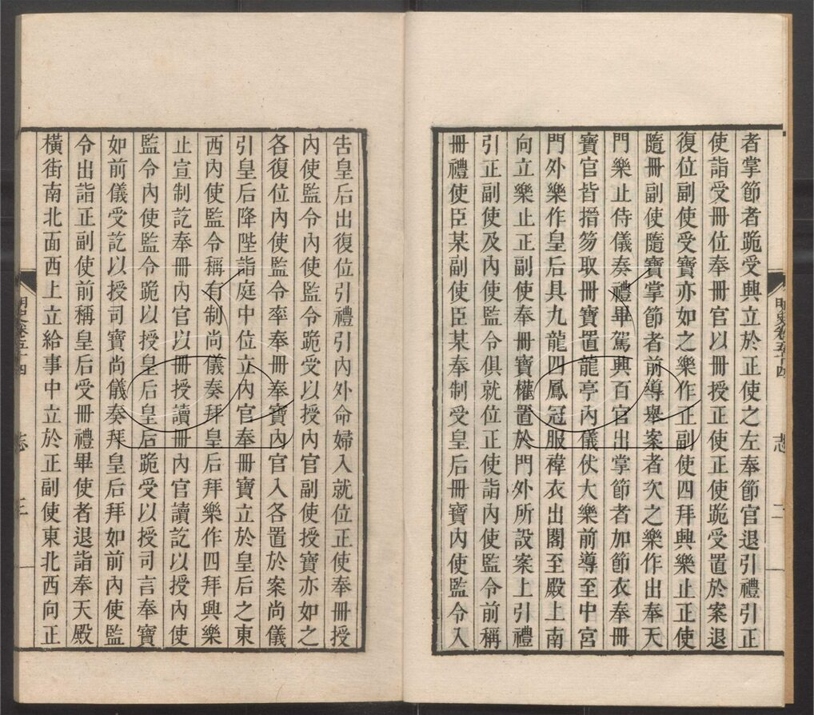 者掌節者跪受興立於正使之左奉節官退引禮引正
使詣受冊位奉冊官以冊授正使正使跪受置於案退
復位副使受寶亦如之樂作正副使四拜興樂止正使
隨冊副使隨寶掌節者前導舉案者次之樂作出奉天
門樂止侍儀奏禮畢駕興百官出掌節者加節衣奉冊
寶官皆搢笏取冊寶置龍亭內儀仗大樂前導至中宮
門外樂作皇后具九龍四鳳冠服褘衣出閤至殿上南
向立樂止正副使奉冊寶權置於門外所設案上引禮
引正副使及內使監令俱就位正使詣內使監令前稱
冊禮使臣某副使臣某奉制受皇后冊寶內使監令入
明史卷五十四 志 二
告皇后出復位引禮引內外命婦入就位正使奉冊授
內使監令內使監令跪受以授內官副使授寶亦如之
各復位內使監令率奉冊奉寶內官入各置於案尚儀
引皇后降陛詣庭中位立內官奉冊寶立於皇后之東
西內使監令稱有制尚儀奏拜皇后拜樂作四拜興樂
止宣制訖奉冊內官以冊授讀冊內官讀訖以授內使
監令內使監令跪以授皇后皇后跪受以授司言奉寶
如前儀受訖以授司寶尚儀奏拜皇后拜如前內使監
令出詣正副使前稱皇后受冊禮畢使者退詣奉天殿
橫街南北面西上立給事中立於正副使東北西向正
明史卷五十四 志 三